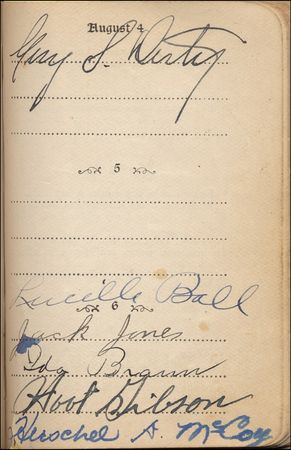 August 4
5
Lucille Ball
6
Jack Jones
Ida Braun
Hoot Gibson
Herschel A. McCoy